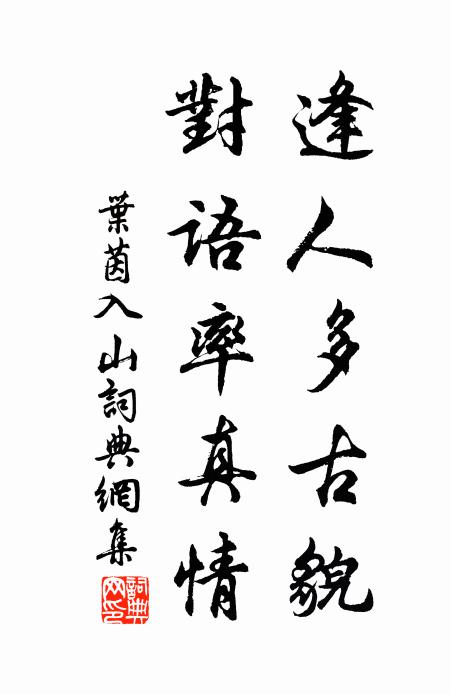 逢人多古貌
對语率真情
葉茵入山詞典網集
詞典网印